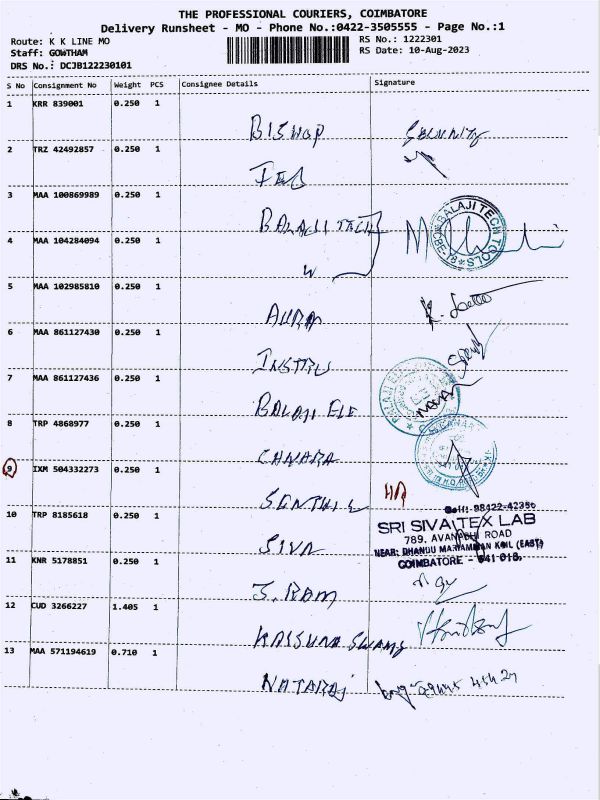 THE PROFESSIONAL COURIERS, COIMBATORE
Delivery Runsheet - MO - Phone No.:0422-3505555 - Page No.:1
Route: K K LINE MO
RS No.: 1222301
Staff: GOWTHAM
RS Date: 10-Aug-2023
DRS No.: DCJB122230101
S No Consignment No Weight PCS Consignee Details Signature
1 KRR 839001 0.250 1
BISHOP
2 TRZ 42492857 0.250 1
3 MAA 100869989 0.250 1
BALAJI TECH
BALAJI TECH TOOLS
4 MAA 104284094 0.250 1
5 MAA 102985810 0.250 1
AURA K.
6 MAA 861127430 0.250 1
INSTRU
7 MAA 861127436 0.250 1
BALAJI ELE
8 TRP 4868977 0.250 1
CANARA
9 IXM 504332273 0.250 1
SENTHIL
Cell: 98422-42356
10 TRP 8185618 0.250 1
SRI SIVA TEX LAB
789, AVANASHI ROAD
SIVA
NEAR: DHANDU MARIAMMAN KOIL (EAST)
11 KNR 5178851 0.250 1
COIMBATORE - 641 018.
J. RAM
12 CUD 3266227 1.405 1
13 MAA 571194619 0.710 1
NATARAJ